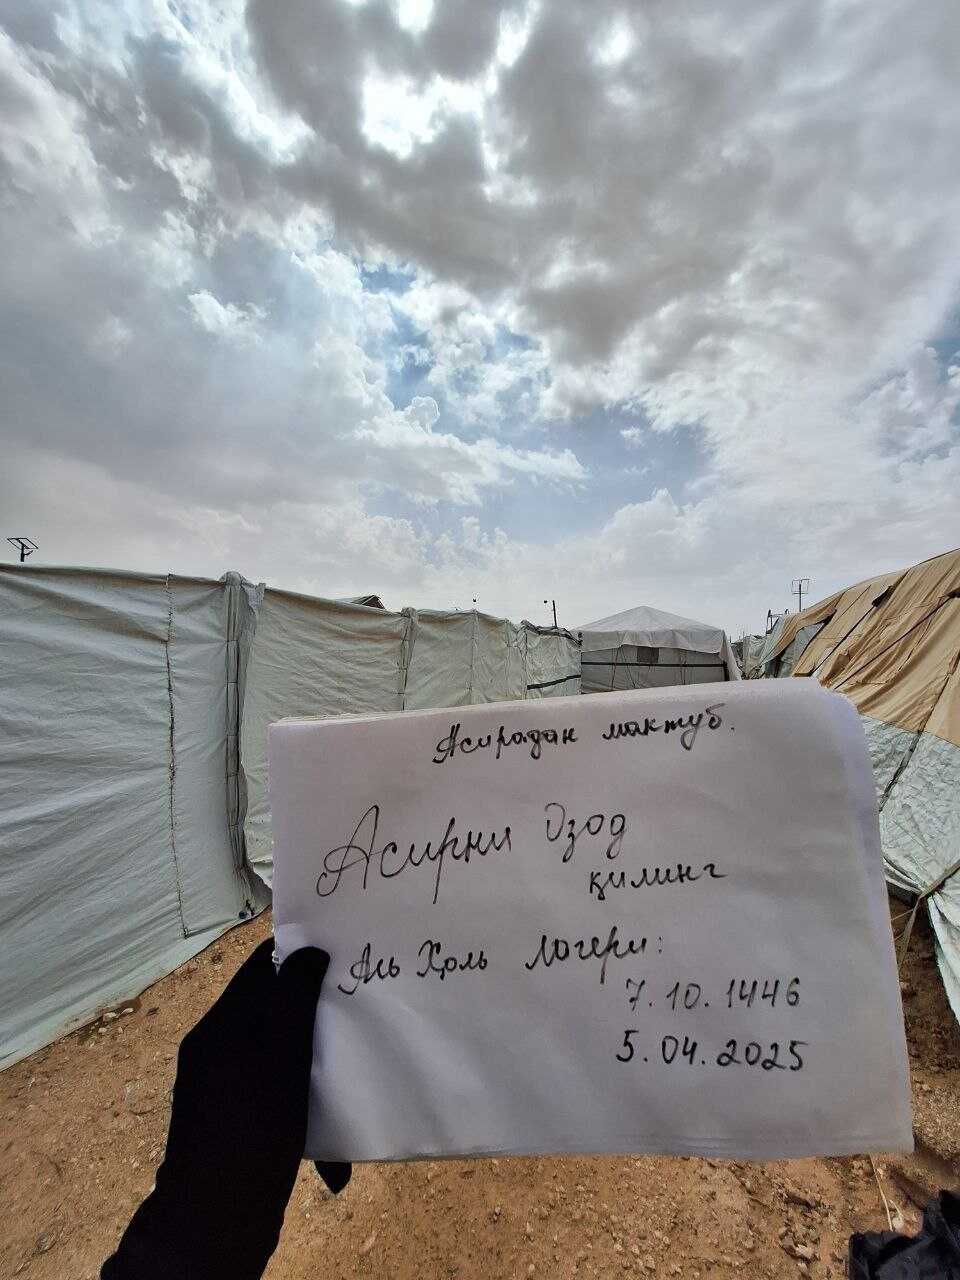 Асирадан мактуб.
Асирни Озод
қилинг
Аль Ҳоль Лагери:
7.10.1446
5.04.2025